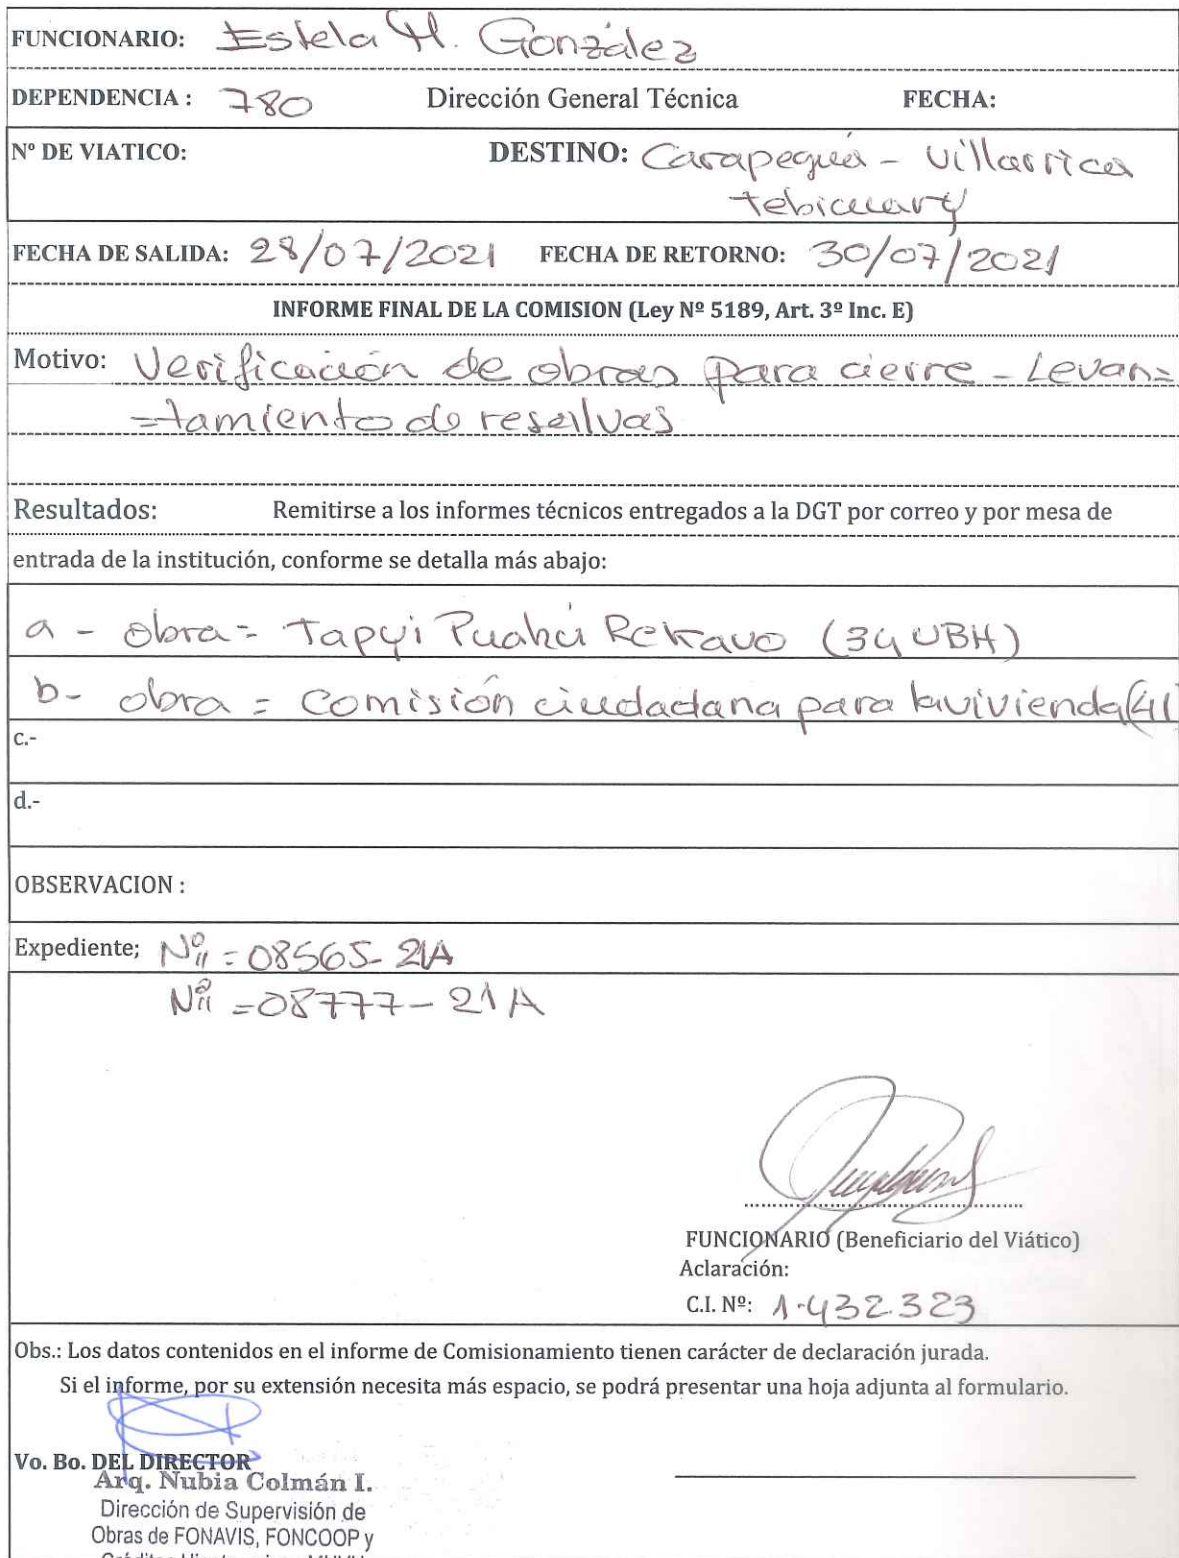 FUNCIONARIO: Estela H. González
DEPENDENCIA : 780 Dirección General Técnica FECHA:
Nº DE VIATICO: DESTINO: Carapeguá - Villarrica
tebicuary
FECHA DE SALIDA: 28/07/2021 FECHA DE RETORNO: 30/07/2021
INFORME FINAL DE LA COMISION (Ley Nº 5189, Art. 3º Inc. E)
Motivo: Verificación de obras para cierre - Levan=
=tamiento de resellvas
Resultados: Remitirse a los informes técnicos entregados a la DGT por correo y por mesa de
entrada de la institución, conforme se detalla más abajo:
a - obra = Tapyi Puahú Rekavo (34 UBH)
b- obra = Comisión ciudadana para la vivienda (41
c.-
d.-
OBSERVACION :
Expediente; Nº = 08565- 21A
Nº = 08777- 21A
FUNCIONARIO (Beneficiario del Viático)
Aclaración:
C.I. Nº: 1.432.323
Obs.: Los datos contenidos en el informe de Comisionamiento tienen carácter de declaración jurada.
Si el informe, por su extensión necesita más espacio, se podrá presentar una hoja adjunta al formulario.
Vo. Bo. DEL DIRECTOR
Arq. Nubia Colmán I.
Dirección de Supervisión de
Obras de FONAVIS, FONCOOP y